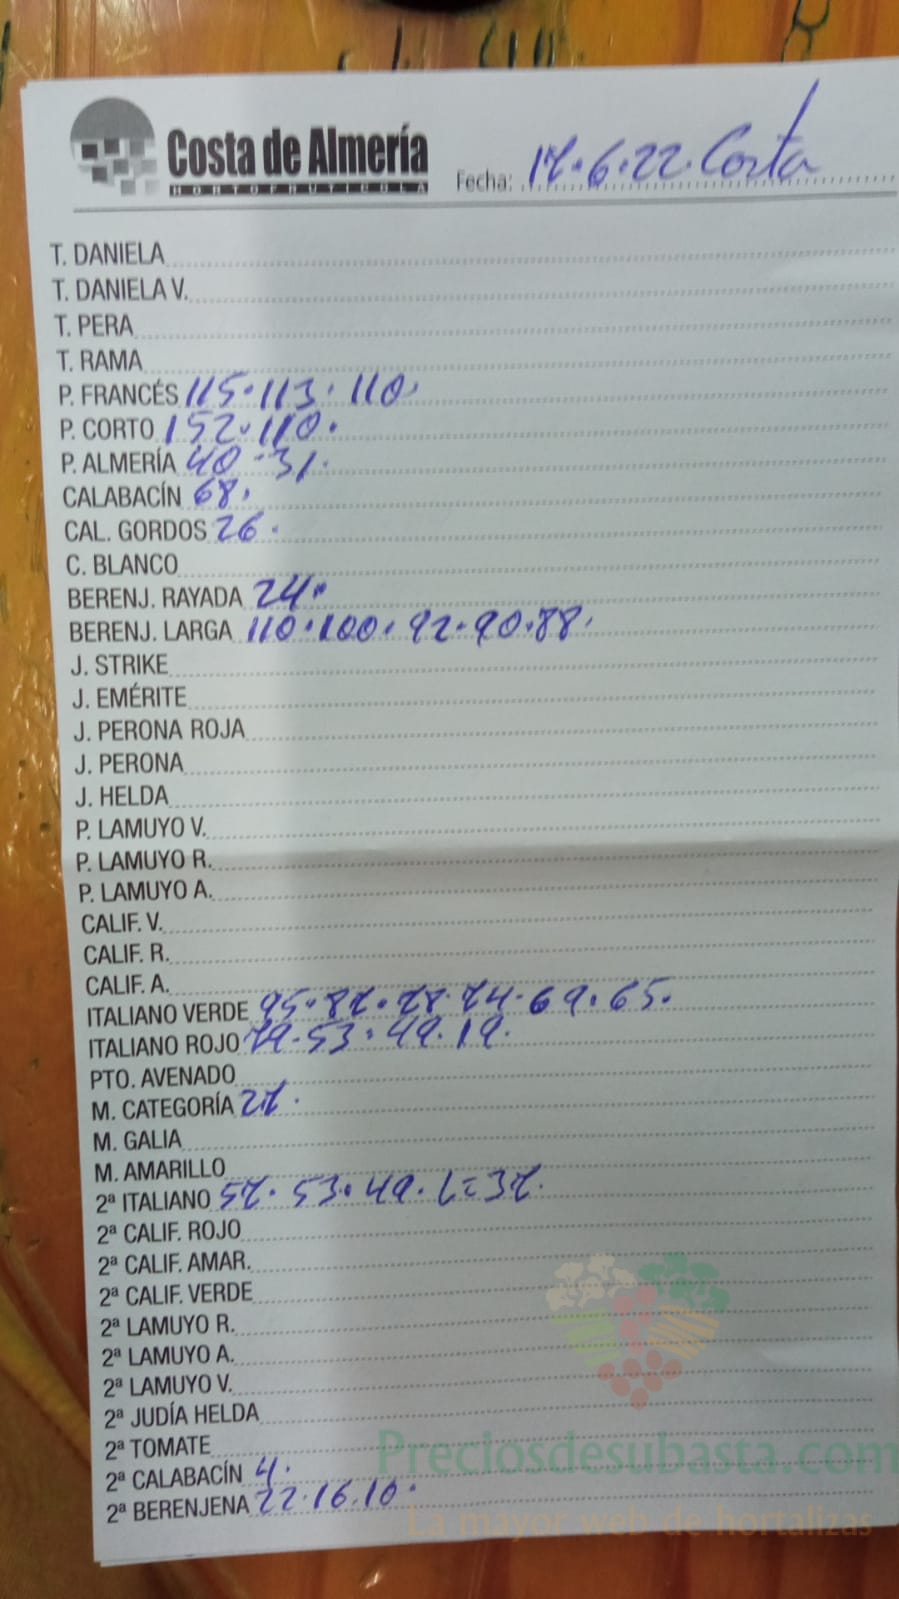 Costa de Almería
HORTOFRUTICOLA
Fecha: 17.6.22. Costa
T. DANIELA
T. DANIELA V.
T. PERA
T. RAMA
P. FRANCÉS 115.113.110.
P. CORTO 152.110.
P. ALMERÍA 40.31.
CALABACÍN 68.
CAL. GORDOS 26.
C. BLANCO
BERENJ. RAYADA 24.
BERENJ. LARGA 110.100.92.90.88.
J. STRIKE
J. EMÉRITE
J. PERONA ROJA
J. PERONA
J. HELDA
P. LAMUYO V.
P. LAMUYO R.
P. LAMUYO A.
CALIF. V.
CALIF. R.
CALIF. A.
ITALIANO VERDE 95.87.78.74.69.65.
ITALIANO ROJO 79.53.49.19.
PTO. AVENADO
M. CATEGORÍA 27.
M. GALIA
M. AMARILLO
2ª ITALIANO 57.53.49.L=37.
2ª CALIF. ROJO
2ª CALIF. AMAR.
2ª CALIF. VERDE
2ª LAMUYO R.
2ª LAMUYO A.
2ª LAMUYO V.
2ª JUDÍA HELDA
2ª TOMATE
2ª CALABACÍN 4.
2ª BERENJENA 22.16.10.
Preciosdesubasta.com
La mayor web de hortalizas